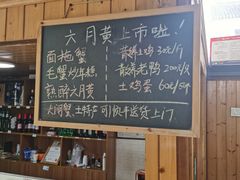 六月黄上市啦!
面拖蟹
毛蟹炒年糕
熟醉六月黄
散养土鸡 30元/斤
散养老鸭 200元/只
土鸡蛋 60元/50个
大闸蟹、土特产可快递送货上门